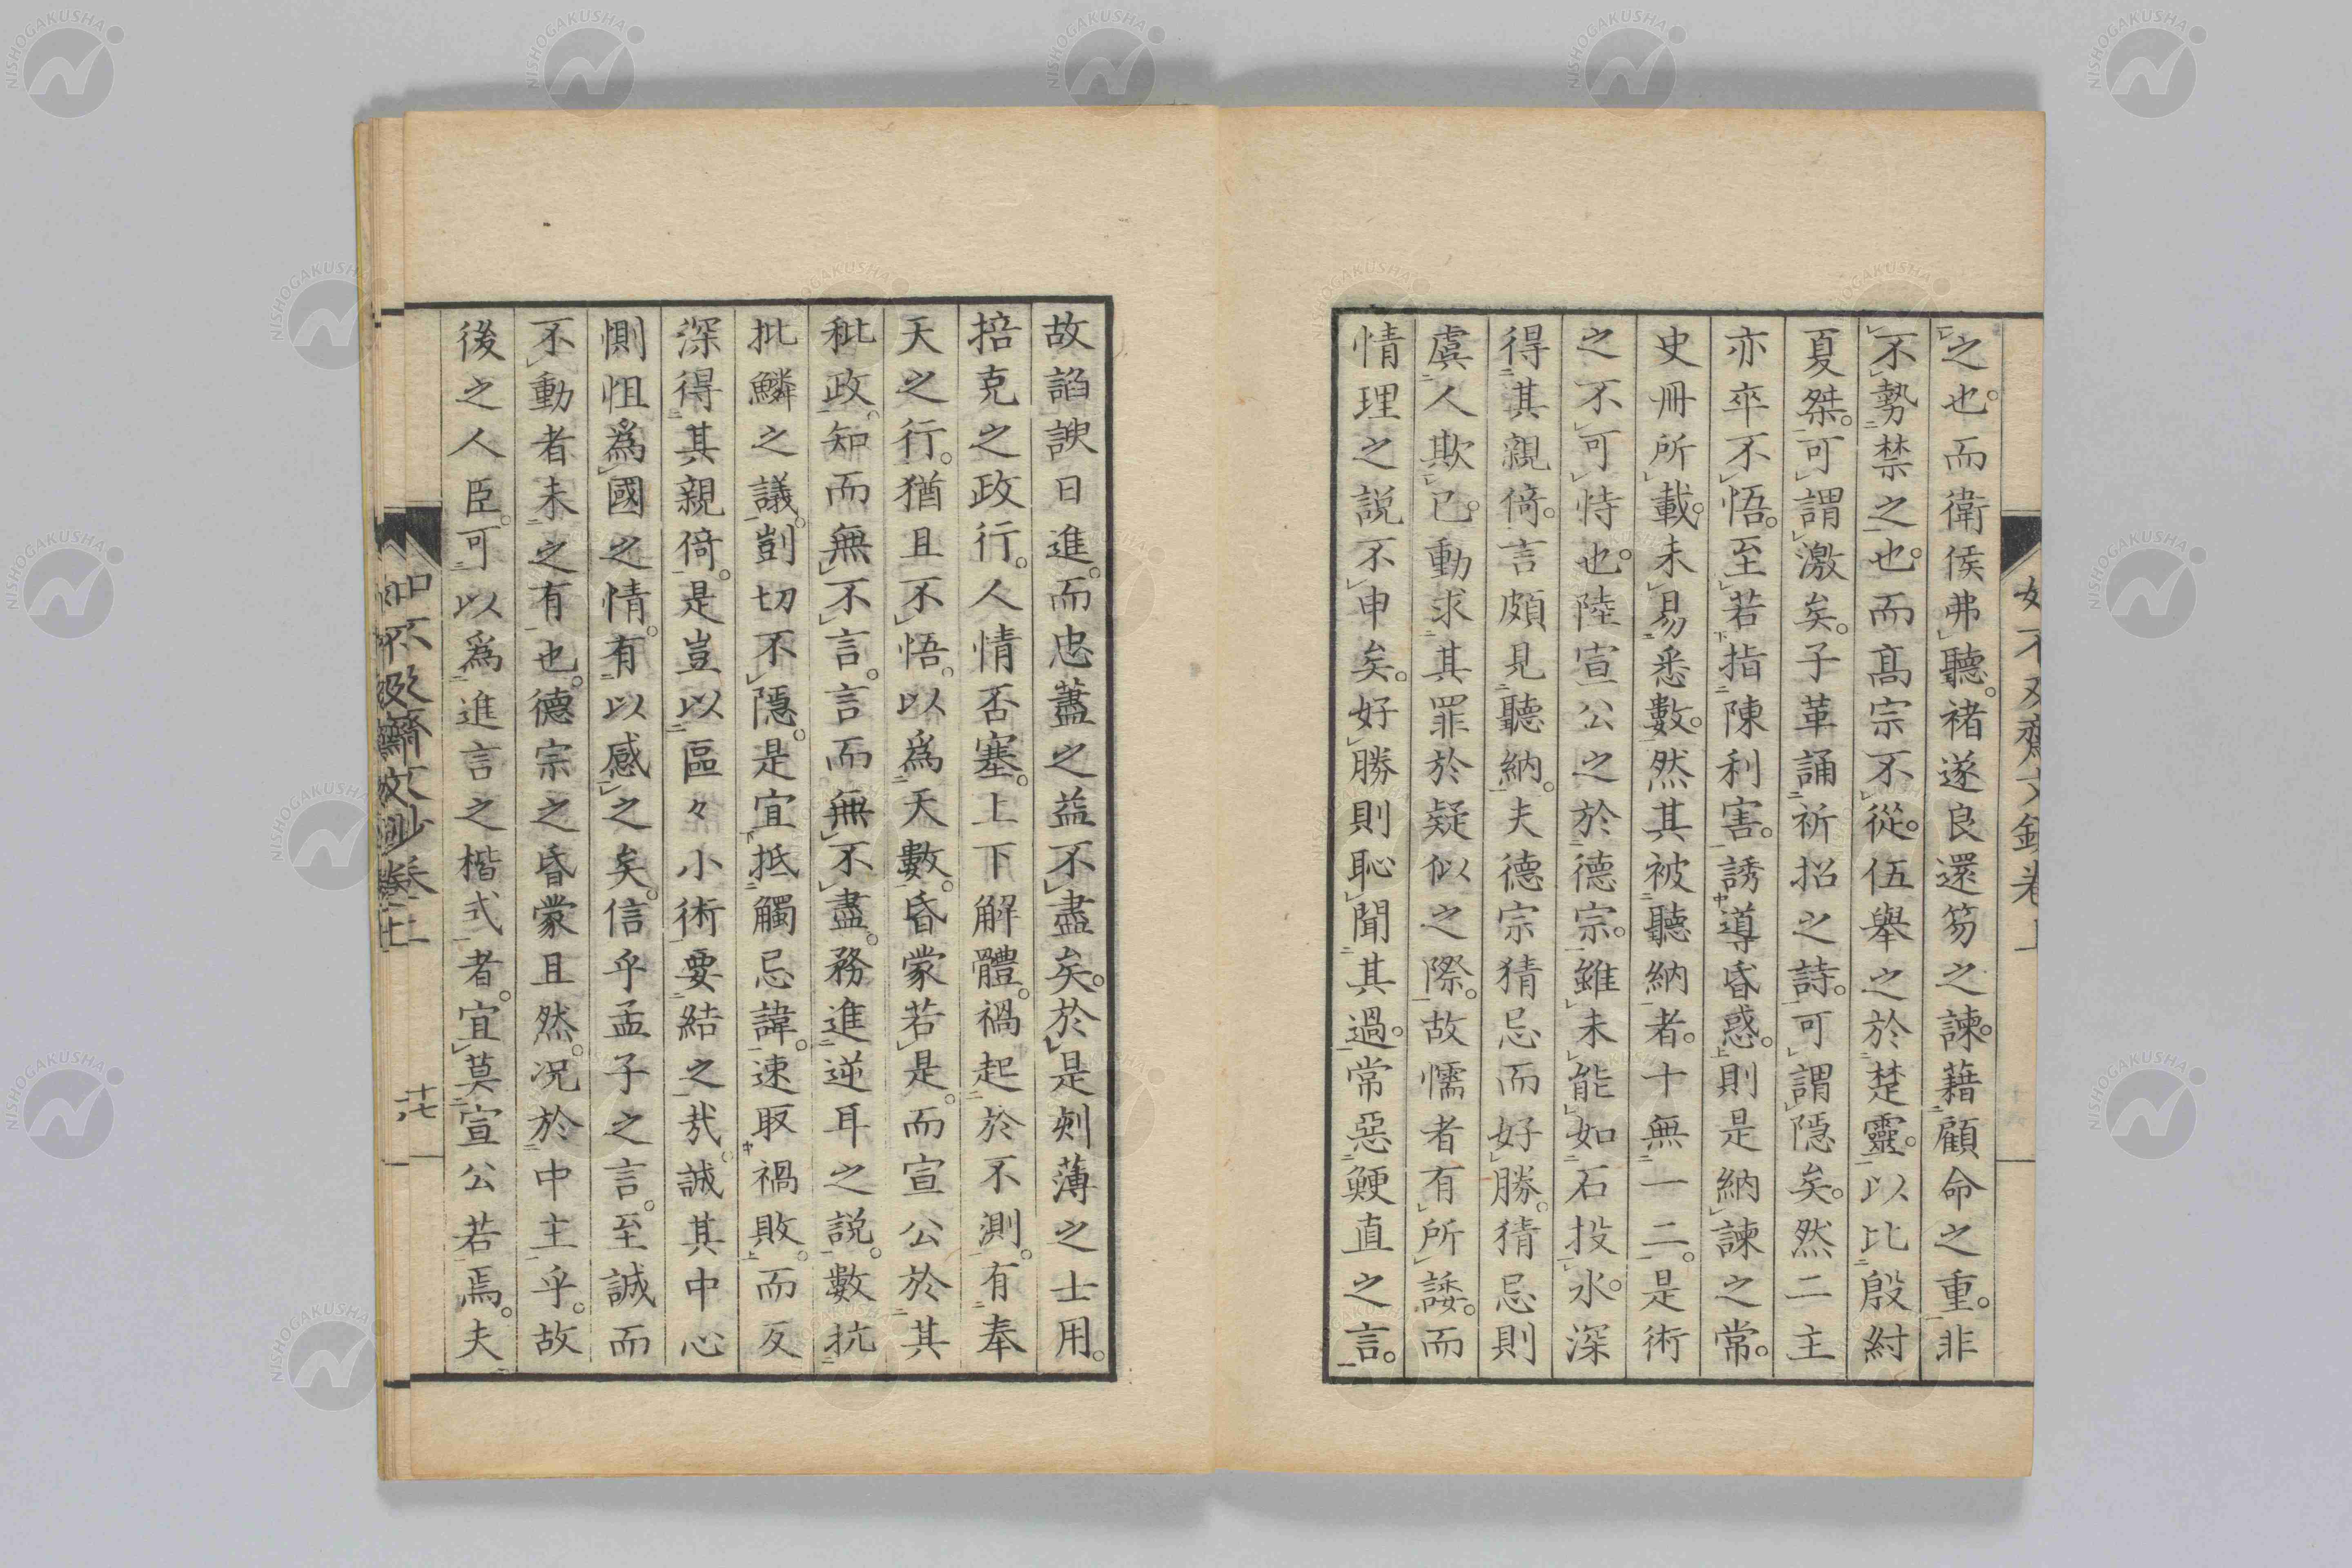 之也。而衛侯弗聽。褚遂良還笏之諫。藉顧命之重。非
不勢禁之也。而髙宗不從。伍舉之於楚靈。以比殷紂
夏桀。可謂激矣。子革誦祈招之詩。可謂隱矣。然二主
亦卒不悟。至若指陳利害。誘導昏惑。則是納諫之常。
史冊所載。未易悉數。然其被聽納者。十無一二。是術
之不可恃也。陸宣公之於德宗。雖未能如石投水。深
得其親倚。言頗見聽納。夫德宗猜忌而好勝。猜忌則
虞人欺已。動求其罪於疑似之際。故懦者有所諉。而
情理之説不申矣。好勝則恥聞其過。常惡鯁直之言。
故諂諛日進。而忠藎之益不盡矣。於是剡薄之士用。
掊克之政行。人情否塞。上下解體。禍起於不測。有奉
天之行。猶且不悟。以爲天數。昏蒙若是。而宣公於其
秕政。知而無不言。言而無不盡。務進逆耳之説。數抗
批鱗之議。剴切不隱。是宜抵觸忌諱。速取禍敗。而反
深得其親倚。是豈以區々小術。要結之哉。誠其中心
惻怛爲國之情。有以感之矣。信乎孟子之言。至誠而
不動者未之有也。德宗之昏蒙且然。况於中主乎。故
後之人臣。可以爲進言之楷式者。宜莫宣公若焉。夫
如不及齋文鈔卷上
十七
NISHOGAKUSHA